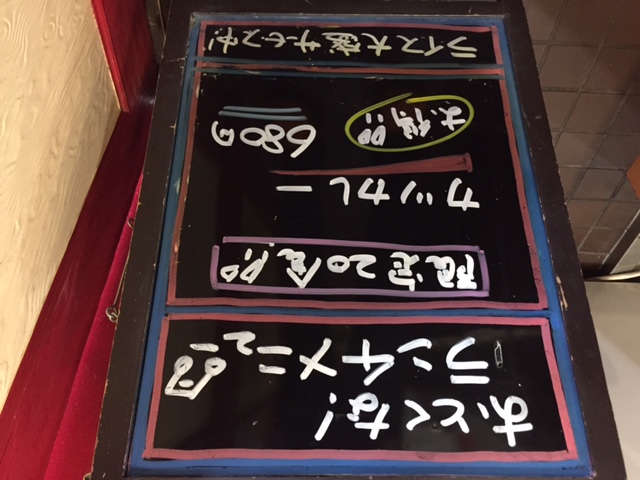 おとくな!
ランチメニュー
限定20食!!
カツカレー
お得!!
680円
ライス大盛サービス中!